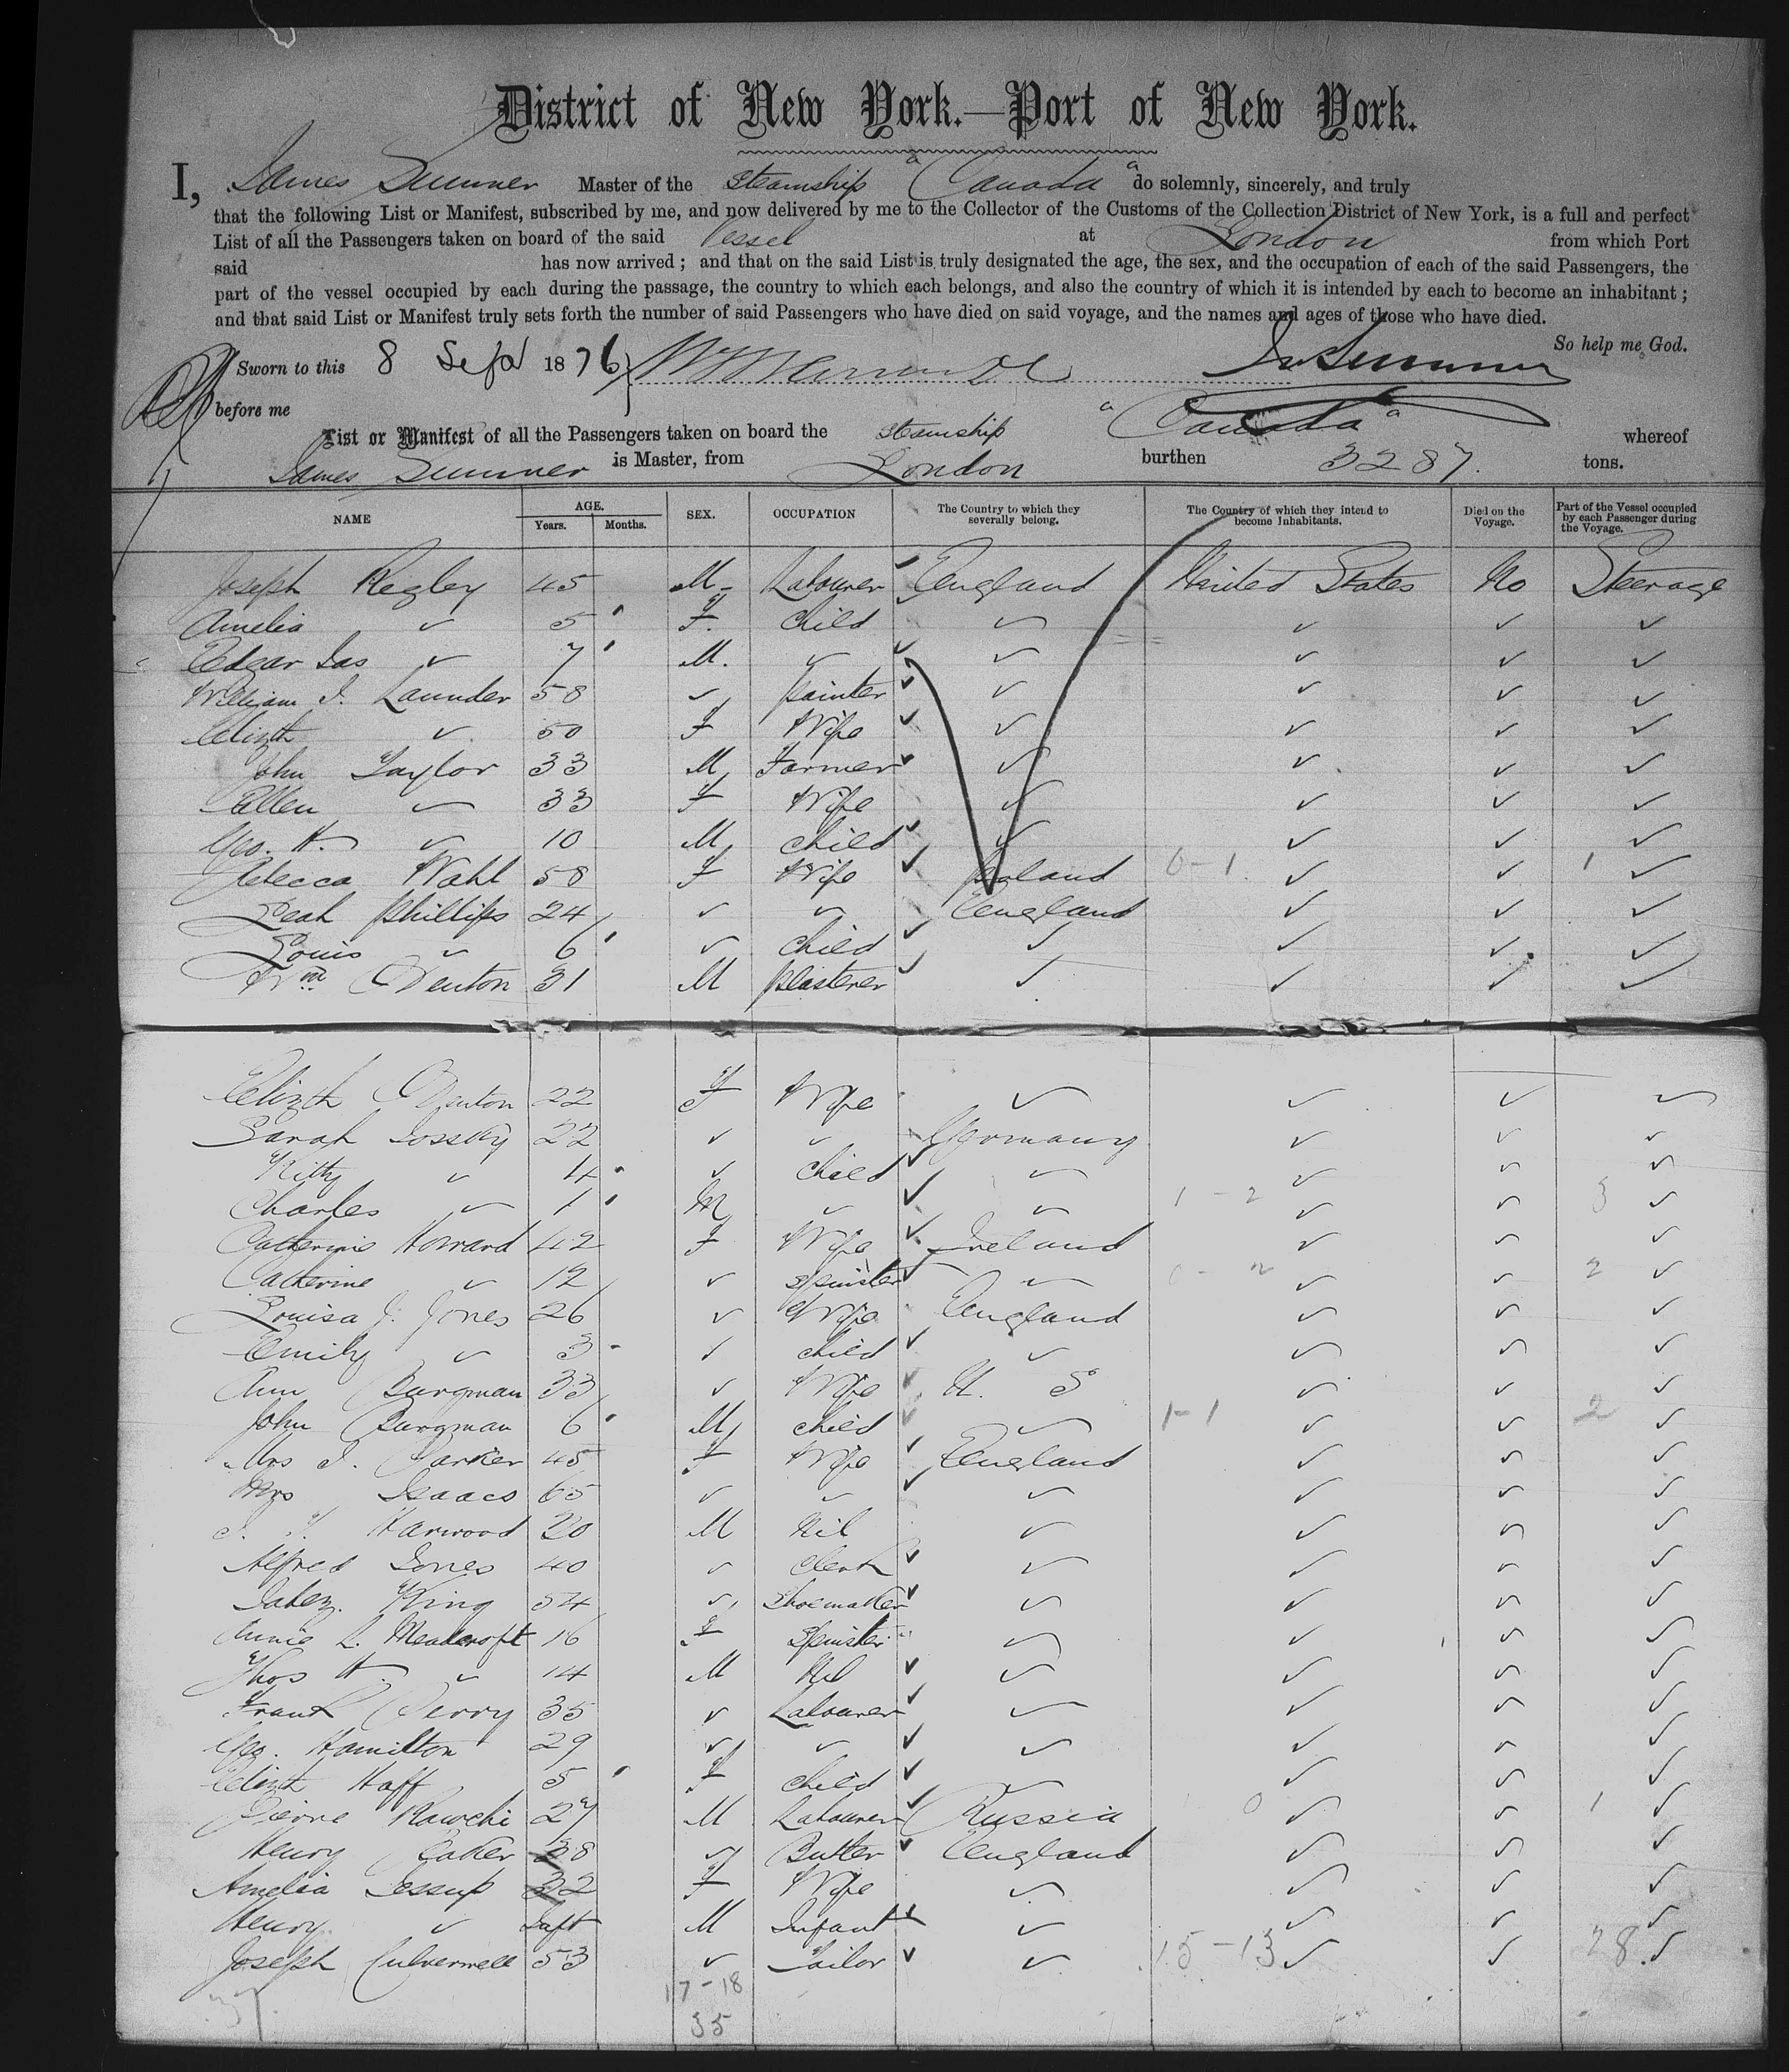 District of New York.—Port of New York.
I, James Sumner Master of the Steamship "Canada" do solemnly, sincerely, and truly
that the following List or Manifest, subscribed by me, and now delivered by me to the Collector of the Customs of the Collection District of New York, is a full and perfect
List of all the Passengers taken on board of the said Vessel at London from which Port
said has now arrived; and that on the said List is truly designated the age, the sex, and the occupation of each of the said Passengers, the
part of the vessel occupied by each during the passage, the country to which each belongs, and also the country of which it is intended by each to become an inhabitant;
and that said List or Manifest truly sets forth the number of said Passengers who have died on said voyage, and the names and ages of those who have died.
So help me God.
Sworn to this 8 Sept 1876 Jas Sumner
before me
List or Manifest of all the Passengers taken on board the steamship "Canada" whereof
James Sumner is Master, from London burthen 3287. tons.
NAME AGE. Years. Months. SEX. OCCUPATION The Country to which they severally belong. The Country of which they intend to become Inhabitants. Died on the Voyage. Part of the Vessel occupied by each Passenger during the Voyage.
Joseph Regley 45 M Labourer England United States No Steerage
Amelia ✓ 5 F. Child ✓ ✓ ✓ ✓
Edgar Jas ✓ 7 M. ✓ ✓ ✓ ✓ ✓
William J. Launder 58 ✓ painter ✓ ✓ ✓ ✓
Elizth ✓ 50 F Wife ✓ ✓ ✓ ✓
John Taylor 33 M Farmer ✓ ✓ ✓ ✓
Ellen ✓ 33 F Wife ✓ ✓ ✓ ✓
Geo. H. ✓ 10 M Child ✓ ✓ ✓ ✓
Rebecca Wahl 58 F Wife Poland 0-1 ✓ ✓ 1 ✓
Leah Phillips 24 ✓ ✓ England ✓ ✓ ✓
Louis ✓ 6 ✓ Child ✓ ✓ ✓ ✓
Wm Denton 31 M plasterer ✓ ✓ ✓ ✓
Elizth Denton 22 F Wife ✓ ✓ ✓ ✓
Sarah 22 ✓ ✓ Germany ✓ ✓ ✓
Kitty ✓ 4 ✓ Child ✓ ✓ ✓ ✓
Charles ✓ 1 M ✓ ✓ 1-2 ✓ ✓ 3 ✓
Catherine Howard 42 F Wife Ireland ✓ ✓ ✓
Catherine ✓ 12 ✓ Spinster ✓ 0-2 ✓ ✓ 2 ✓
Louisa J. Jones 26 ✓ Wife England ✓ ✓ ✓
Emily ✓ 3 ✓ child ✓ ✓ ✓ ✓
Ann Burgman 33 ✓ Wife U. S ✓ ✓ ✓
John Burgman 6 M child ✓ 1-1 ✓ ✓ 2 ✓
Mrs J. Parker 45 F Wife England ✓ ✓ ✓
Mrs Isaacs 65 ✓ ✓ ✓ ✓ ✓ ✓
Harwood 20 M Nil ✓ ✓ ✓ ✓
Alfred Jones 40 ✓ Clerk ✓ ✓ ✓ ✓
Jabez King 54 ✓ Shoemaker ✓ ✓ ✓ ✓
Annie L. Meadcroft 16 F Spinster ✓ ✓ ✓ ✓
Thos H. ✓ 14 M Nil ✓ ✓ ✓ ✓
Frank Perry 35 ✓ Labourer ✓ ✓ ✓ ✓
Geo. Hamilton 29 ✓ ✓ ✓ ✓ ✓ ✓
Elizth Haff 5 F child ✓ ✓ ✓ ✓
Pierre Rawchi 27 M Labourer Russia 0 ✓ ✓ 1 ✓
Henry Baker 38 ✓ Butler England ✓ ✓ ✓
Amelia Jessup 32 F Wife ✓ ✓ ✓ ✓
Henry ✓ Inft M Infant ✓ ✓ ✓ ✓
Joseph Culverwell 53 ✓ Tailor ✓ 15-13 ✓ ✓ 28 ✓
37 17-18
35